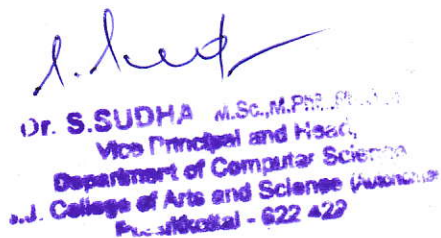 Dr. S.SUDHA M.Sc.,M.Phil.,
Vice Principal and Head,
Department of Computer Science
J.J. College of Arts and Science (Autonomous)
Pudukkottai - 622 422